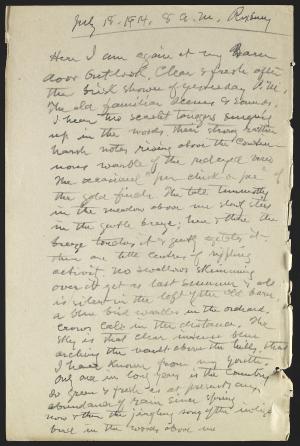 July 18. 1914. 8 a.m. Roxbury
Here I am again at my Barn
door outlook. Clear & fresh after
the brisk shower of yesterday P.M.
The old familiar scenes & sounds.
I hear two scarlet tanagers singing
up in the woods, their strong rather
harsh notes rising above the contin-
uous warble of the red-eyed vireo
The occasional "per chick-o-pee" of
the gold finch. The tall timothy
in the meadow above me
in the gentle breeze; here & there the
breeze touches it & gently agitates it -
then are little centres of rippling
activity. No swallows skimming
over it yet as last summer & all
is silent in the loft of the old barn,
a blue bird warbles in the orchard,
crows call in the distance. The
sky is that clear intense blue
arching the vault above the hills, that
I have known from my youth.
Not one in ten years is the country
so green & fresh as at present, an
abundance of rain since spring.
now & then the jingling song of the indigo
bird in the woods above me